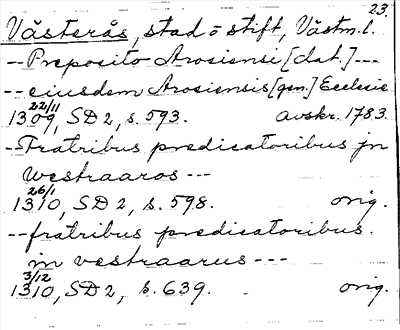 23.
Västerås, stad o stift, Västm.l.
-- Preposito Arosiensi [dat.] ---
-- eiusdem Arosiensis [gen.] Ecclesie
22/11
1309, SD 2, s. 593. avskr. 1783.
- Fratribus predicatoribus jn
westraaros ---
26/1
1310, SD 2, s. 598. orig.
-- fratribus predicatoribus.
in vestraarus ---
3/12
1310, SD 2, s. 639. orig.